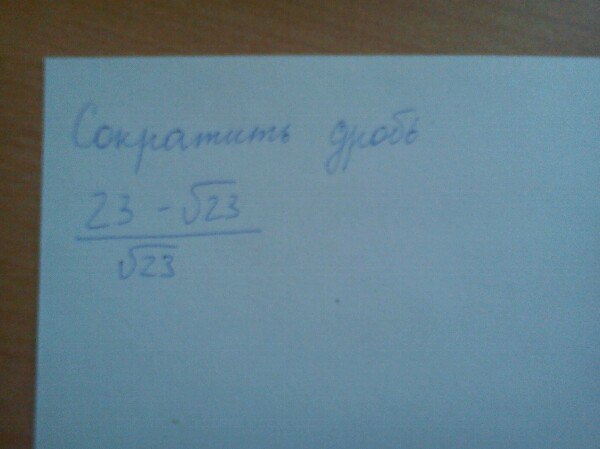 Сократить дробь
23 - √23
√23